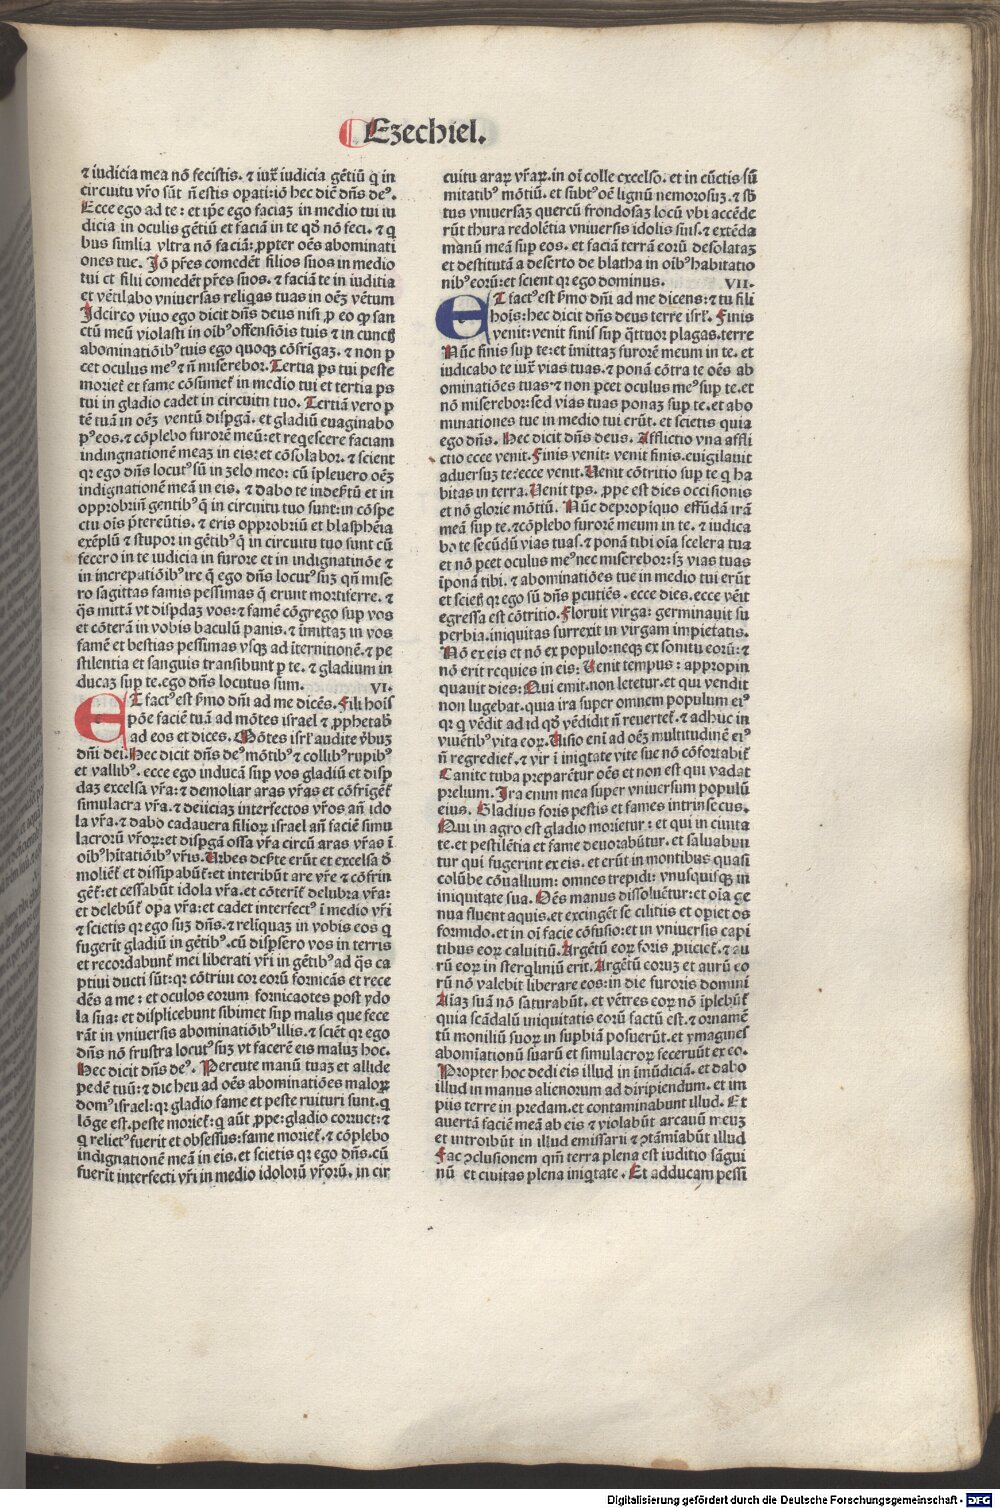 Ezechiel.
⁊ iudicia mea nō fecistis. ⁊ iuxᷓ iudicia gētiū q̄ in
circuitu vr̄o sūt n̄ estis oꝑati: iō hec dic̄ dn̄s deꝰ.
Ecce ego ad te: et ip̄e ego faciaꝫ in medio tui iu
dicia in oculis gētiū et faciā in te qd̄ nō feci. ⁊ q̄
bus similia vltra nō faciā: ꝓpter oēs abominati
ones tue. Iō pr̄es comedēt filios suos in medio
tui et filii comedēt pr̄es suos. ⁊ faciā te in iuditia
et vētilabo vniuersas reliq̄as tuas in oēꝫ vētum
Idcirco viuo ego dicit dn̄s deus nisi ꝓ eo ꝙ san
ctū meū violasti in oib̄ꝰ offensiōis tuis ⁊ in cunct̄
abominatiōib̄ꝰ tuis ego quoqꝫ cōfrīgaꝫ. ⁊ non ꝑ
cet oculus meꝰ ⁊ n̄ miserebor. Tertia ps tui peste
moriet̄ et fame cōsumet̄ in medio tui et tertia ps
tui in gladio cadet in circuitu tuo. Tertiā vero ꝑ
tē tuā in oēꝫ ventū disꝑgā. et gladiū euaginabo
pꝰ eos. ⁊ cōplebo furorē meū: et reqescere faciam
indingnationē meaꝫ in eis: et cōsolabor. ⁊ scient
qꝛ ego dn̄s locutꝰ sū in zelo meo: cū īpleuero oēꝫ
indignationē meā in eis. ⁊ dabo te in deẜtū et in
opprobriū gentibꝰ q̄ in circuitu tuo sunt: in cōspe
ctu ois p̄tereūtis. ⁊ eris opprobriū et blasphēia
exēplū ⁊ stupor in gētib̄ꝰ q̄ in circuitu tuo sunt cū
fecero in te iudicia in furore et in indignatinōe ⁊
in increpatiōib̄ꝰ ire q̄ ego dn̄s locutꝰ suꝫ qn̄ mise
ro sagittas famis pessimas q̄ erunt mortiferre. ⁊
q̄s mittā vt disꝑdaꝫ vos: ⁊ famē cōgrego suꝑ vos
et cōterā in vobis baculū panis. ⁊ īmittaꝫ in vos
famē et bestias pessimas vsqꝫ ad iternitionē. ⁊ pe
stilentia et sanguis transibunt ꝑ te. ⁊ gladium in
ducaꝫ suꝑ te. ego dn̄s locutus sum. VI.
Et factꝰ est ẜmo dn̄i ad me dicēs. Fili hois
pōe faciē tuā ad mōtes israel ⁊ ꝓphetab̄
ad eos et dices. Mōtes isrl̄ audite v̄buꝫ
dn̄i dei. Hec dicit dn̄s deꝰ mōtib̄ꝰ ⁊ collib̄ꝰ rupib̄ꝰ
et vallib̄ꝰ. ecce ego inducā suꝑ vos gladiū et disꝑ
daꝫ excelsa vr̄a: ⁊ demoliar aras vr̄as et cōfrīgēt̄
simulacra vr̄a. ⁊ deiiciaꝫ interfectos vr̄os an̄ ido
la vr̄a. ⁊ dabo cadauera filioꝝ israel an̄ faciē simu
lacrorū vr̄oꝝ: et disꝑgā ossa vr̄a circū aras vr̄as ī
oib̄ꝰ hitatiōib̄ꝰ vr̄is. Urbes deẜte erūt et excelsa d̄
moliēt̄ et dissipabūt̄: et interibūt are vr̄e ⁊ cōfrin
gēt̄: et cessabūt idola vr̄a. et cōterēt̄ delubra vr̄a:
et delebūt̄ oꝑa vr̄a: et cadet interfectꝰ ī medio vr̄i
⁊ scietis qꝛ ego suꝫ dn̄s. ⁊ reliq̄aꝫ in vobis eos q̄
fugerīt gladiū in gētib̄ꝰ. cū disꝑsero vos in terris
et recordabunt̄ mei liberati vr̄i in gētib̄ꝰ ad q̄s ca
ptiui ducti sūt: qꝛ cōtriui cor eorū fornicās et rece
dēs a me: et oculos eorum fornicaotes post ydo
la sua: et displicebunt sibimet suꝑ malis que fece
rāt in vniuersis abominatiōib̄ꝰ illis. ⁊ sciēt qꝛ ego
dn̄s nō frustra locutꝰ suꝫ vt facerē eis maluꝫ hoc.
Hec dicit dn̄s deꝰ. Percute manū tuaꝫ et allide
pedē tuū: ⁊ dic heu ad oēs abominatiōes maloꝝ
domꝰ israel: qꝛ gladio fame et peste ruituri sunt. q̄
lōge est. peste moriet̄: q̄ aūt ꝓpe: gladio corruet: ⁊
q̄ relictꝰ fuerit et obsessus: fame moriet̄. ⁊ cōplebo
indignationē meā in eis. et scietis qꝛ ego dn̄s. cū
fuerit interfecti vr̄i in medio idolorū vr̄orū. in cir
cuitu araꝝ vr̄aꝝ. in oī colle excelso. et in cūctis sū
mitatib̄ꝰ mōtiū. et subtꝰ oē lignū nemorosuꝫ. ⁊ sb̄
tus vniuersaꝫ quercū frondosaꝫ locū vbi accēde
rūt thura redolētia vniuersis idolis suis. ⁊ extēda
manū meā suꝑ eos. et faciā terrā eorū desolataꝫ
et destitutā a deserto de blatha in oib̄ꝰ habitatio
nib̄ꝰ eorū: et scient qꝛ ego dominus. VII.
Et factꝰ est ẜmo dn̄i ad me dicens: ⁊ tu fili
hois: hec dicit dn̄s deus terre isrl̄. Finis
venit: venit finis suꝑ q̄ttuor plagas. terre
Nūc finis suꝑ te: et īmittaꝫ furorē meum in te. et
iudicabo te iuxᷓ vias tuas. ⁊ ponā cōtra te oēs ab
ominatiōes tuas ⁊ non ꝑcet oculus meꝰ suꝑ te. et
nō miserebor: sed vias tuas ponaꝫ suꝑ te. et abo
minationes tue in medio tui erūt. et scietis quia
ego dn̄s. Hec dicit dn̄s deus. Afflictio vna affli
ctio ecce venit. Finis venit: venit finis. euigilauit
aduersuꝫ te: ecce venit. Uenit cōtritio suꝑ te q̄ ha
bitas in terra. Uenit tp̄s. ꝓpe est dies occisionis
et nō glorie mōtiū. Nūc de propīquo effūdā irā
meā suꝑ te. ⁊ cōplebo furorē meum in te. ⁊ iudica
bo te secūdū vias tuas. ⁊ ponā tibi oīa scelera tua
et nō ꝑcet oculus meꝰ nec miserebor: sꝫ vias tuas
īponā tibi. ⁊ abominatiōes tue in medio tui erūt
et sciet̄ qꝛ ego sū dn̄s ꝑcutiēs. ecce dies. ecce vēit
egressa est cōtritio. Floruit virga: germinauit su
perbia. iniquitas surrexit in virgam impietatis.
Nō ex eis et nō ex populo: neqꝫ ex sonitu eorū: ⁊
nō erit requies in eis: Uenit tempus: appropin
quauit dies: Qui emit. non letetur. et qui vendit
non lugebat. quia ira super omnem populum eiꝰ
qꝛ q̄ vēdit ad id qd̄ vēdidit n̄ reuertet̄. ⁊ adhuc in
viuētib̄ꝰ vita eoꝝ. Uisio enī ad oēꝫ multitudinē eiꝰ
n̄ regrediet̄. ⁊ vir ī iniq̄tate vite sue nō cōfortabit̄
Canite tuba preparētur oēs et non est qui vadat
prelium. Ira enim mea super vniuersum populū
eius. Gladius foris pestis et fames intrinsecus.
Qui in agro est gladio morietur: et qui in ciuita
te. et pestilētia et fame deuorabūtur. et saluabun
tur qui fugerint ex eis. et erūt in montibus quasi
colūbe cōuallium: omnes trepidi: vnusquisqꝫ in
iniquitate sua. Oēs manus dissoluētur: et oīa ge
nua fluent aquis. et excingēt se cilitiis et oꝑiet os
formido. et in oī facie cōfusio: et in vniuersis capi
tibus eoꝝ caluitiū. Argētū eoꝝ foris ꝓiciet̄. ⁊ au
rū eoꝝ in sterq̄liniū erit. Argētū coruꝫ et aurū eo
rū nō valebit liberare eos: in die furoris domini
Aīaꝫ suā nō saturabūt. et vētres eoꝝ nō īplebūt̄
quia scādalū iniquitatis eorū factū est. ⁊ ornamē
tū moniliū suoꝝ in suꝑbiā posuerūt. et ymagines
abomīationū suarū et simulacroꝝ fecerūt ex eo.
Propter hoc dedi eis illud in īmūdiciā. et dabo
illud in manus alienorum ad diripiendum. et im
piis terre in predam. et contaminabunt illud. Et
auertā faciē meā ab eis ⁊ violabūt arcanū meuꝫ
et introibūt in illud emissarii ⁊ ꝯtamīabūt illud
Fac ꝯclusionem qm̄ terra plena est iuditio sāgui
nū et ciuitas plena iniq̄tate. Et adducam pessi
Digitalisierung gefördert durch die Deutsche Forschungsgemeinschaft - DFG